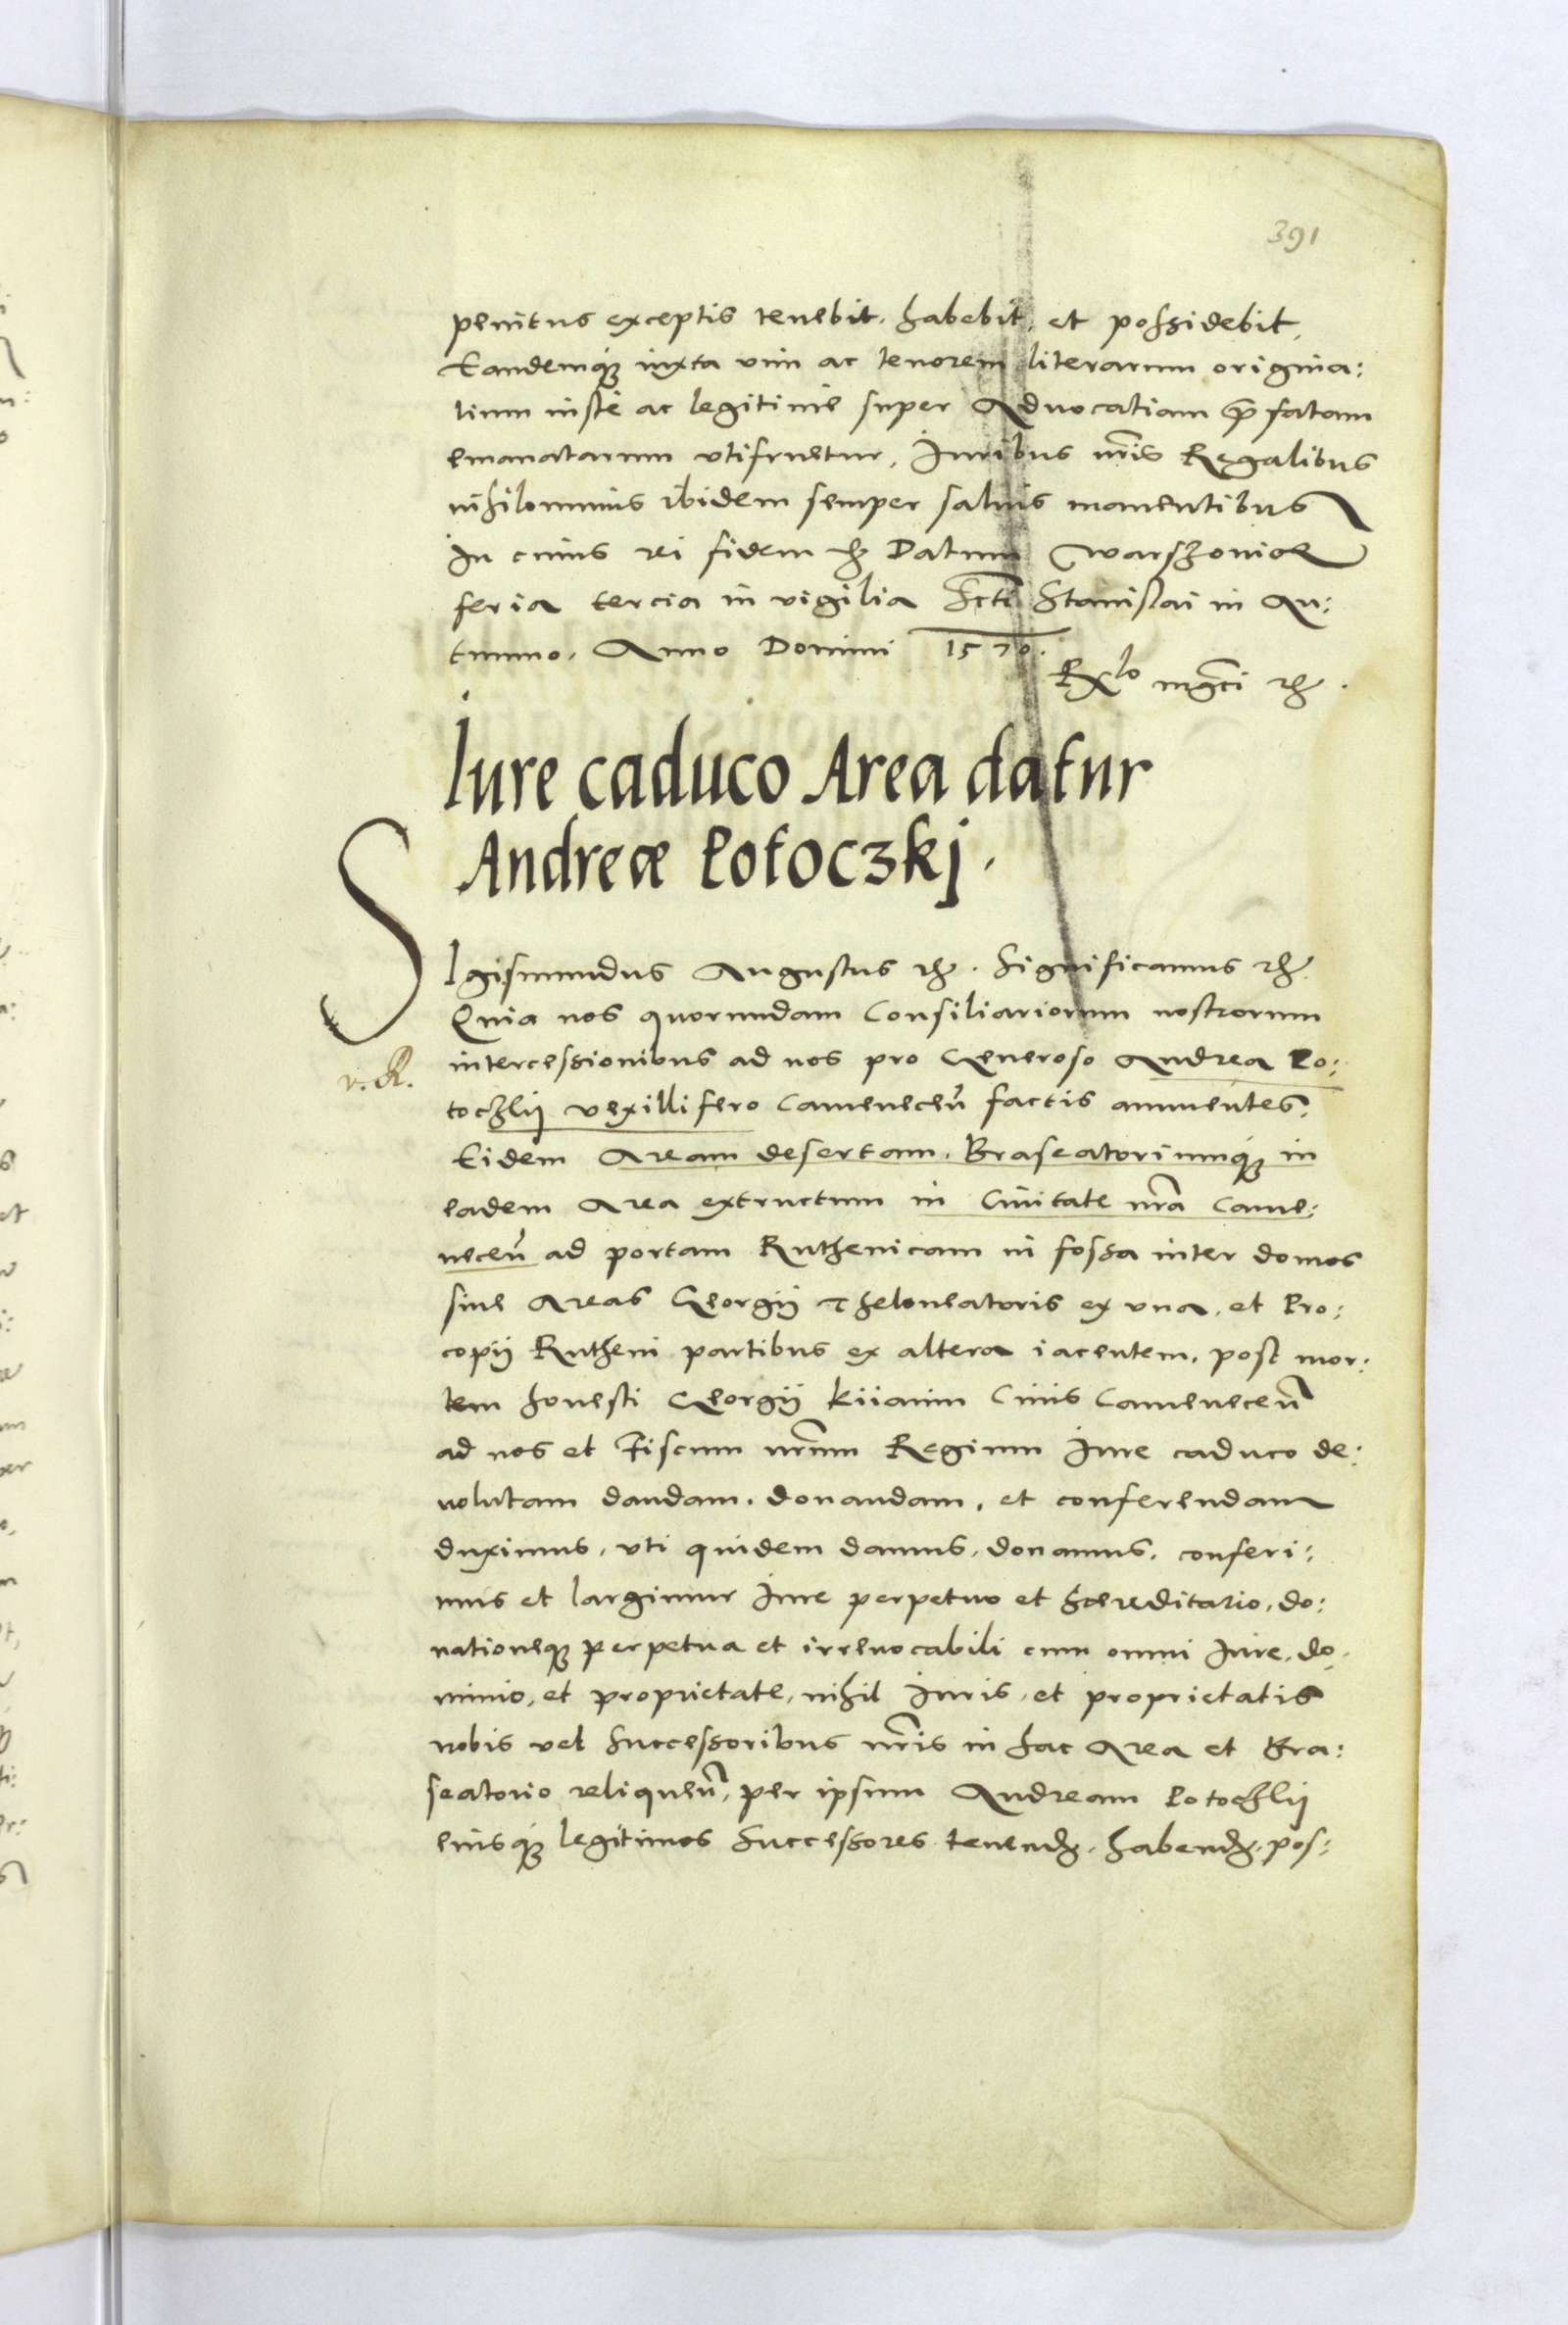 391
penitus exceptis tenebit, habebit, et possidebit,
Eandemq(ue) iuxta vim ac tenorem literarum origina:
lium iuste ac legitime super Aduocatiam p̄fatam
emanatarum vtifruetur, Iuribus nr̄is Regalibus
nihilominus ibidem semper saluis manentibus
In cuius rei fidem etc Datum Warszouiae
feria tercia in vigilia Scti Stanislai in Au:
tumno, Anno Domini 1570.
Rlo mgci etc.
Iure caduco Area datur
Andreæ Potoczkj.
SIgismundus Augustus etc. Significamus etc
Quia nos quorundam Consiliariorum nostrorum
v. R.
intercessionibus ad nos pro Generoso Andrea Po:
toczkij vexillifero Cameneceñ factis annuentes,
Eidem Aream desertam, Braseatoriumq(ue) in
eadem Area extructum in Ciuitate nr̄a Came:
neceñ ad portam Ruthenicam in fossa inter domos
siue Areas Georgij Theloneatoris ex vna, et Pro:
copij Rutheni partibus ex altera iacentem, post mor:
tem honesti Georgij Kiianin Ciuis Cameneceñ
ad nos et Fiscum nr̄um Regium Iure caduco de:
uolutam dandam, donandam, et conferendam
duximus, vti quidem damus, donamus, conferi:
mus et largimur Iure perpetuo et hæreditario, do:
nationeq(ue) perpetua et irreuocabili cum omni Iure, do:
minio, et proprietate, nihil Iuris, et proprietatis
nobis vel Successoribus nr̄is in hac Area et Bra:
seatorio relinqueñ, per ipsum Andream Potoczkij
eiusq(ue) legitimos Successores tenend, habend, pos: